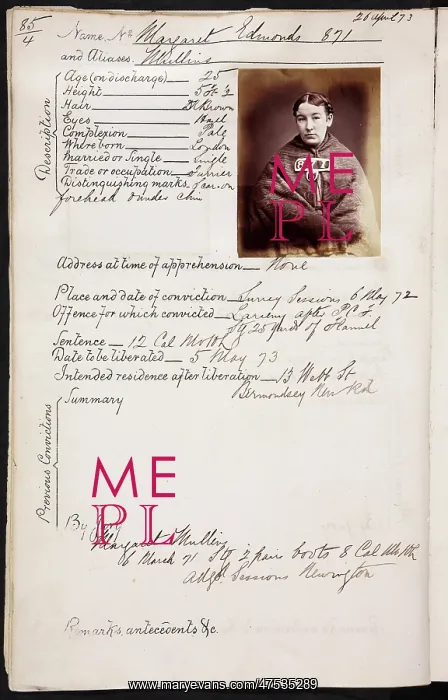 85/4
26 April 73
Name, No. Margaret Edmonds 871
and Aliases. Mullins
Description
Age (on discharge) 25
Height 5 ft ½
Hair D. Brown
Eyes Hazel
Complexion Pale
Where born London
Married or Single Single
Trade or occupation Furrier
Distinguishing marks. Scar on
forehead & under chin
ME
PL
Address at time of apprehension None
Place and date of conviction Surrey Sessions 6 May 72
Offence for which convicted Larceny after P.C.F.
Stg 25 yards of flannel
Sentence 12 Cal Mos
Date to be liberated 5 May 73
Intended residence after liberation 13 Webb St
Bermondsey New Rd
Previous Convictions
Summary
ME
PL
By Jury
Margaret Mullins
6 March 71 Stg 2 pair boots 8 Cal Mos
Adjd. Sessions Newington
Remarks, antecedents &c.
www.maryevans.com/47535289